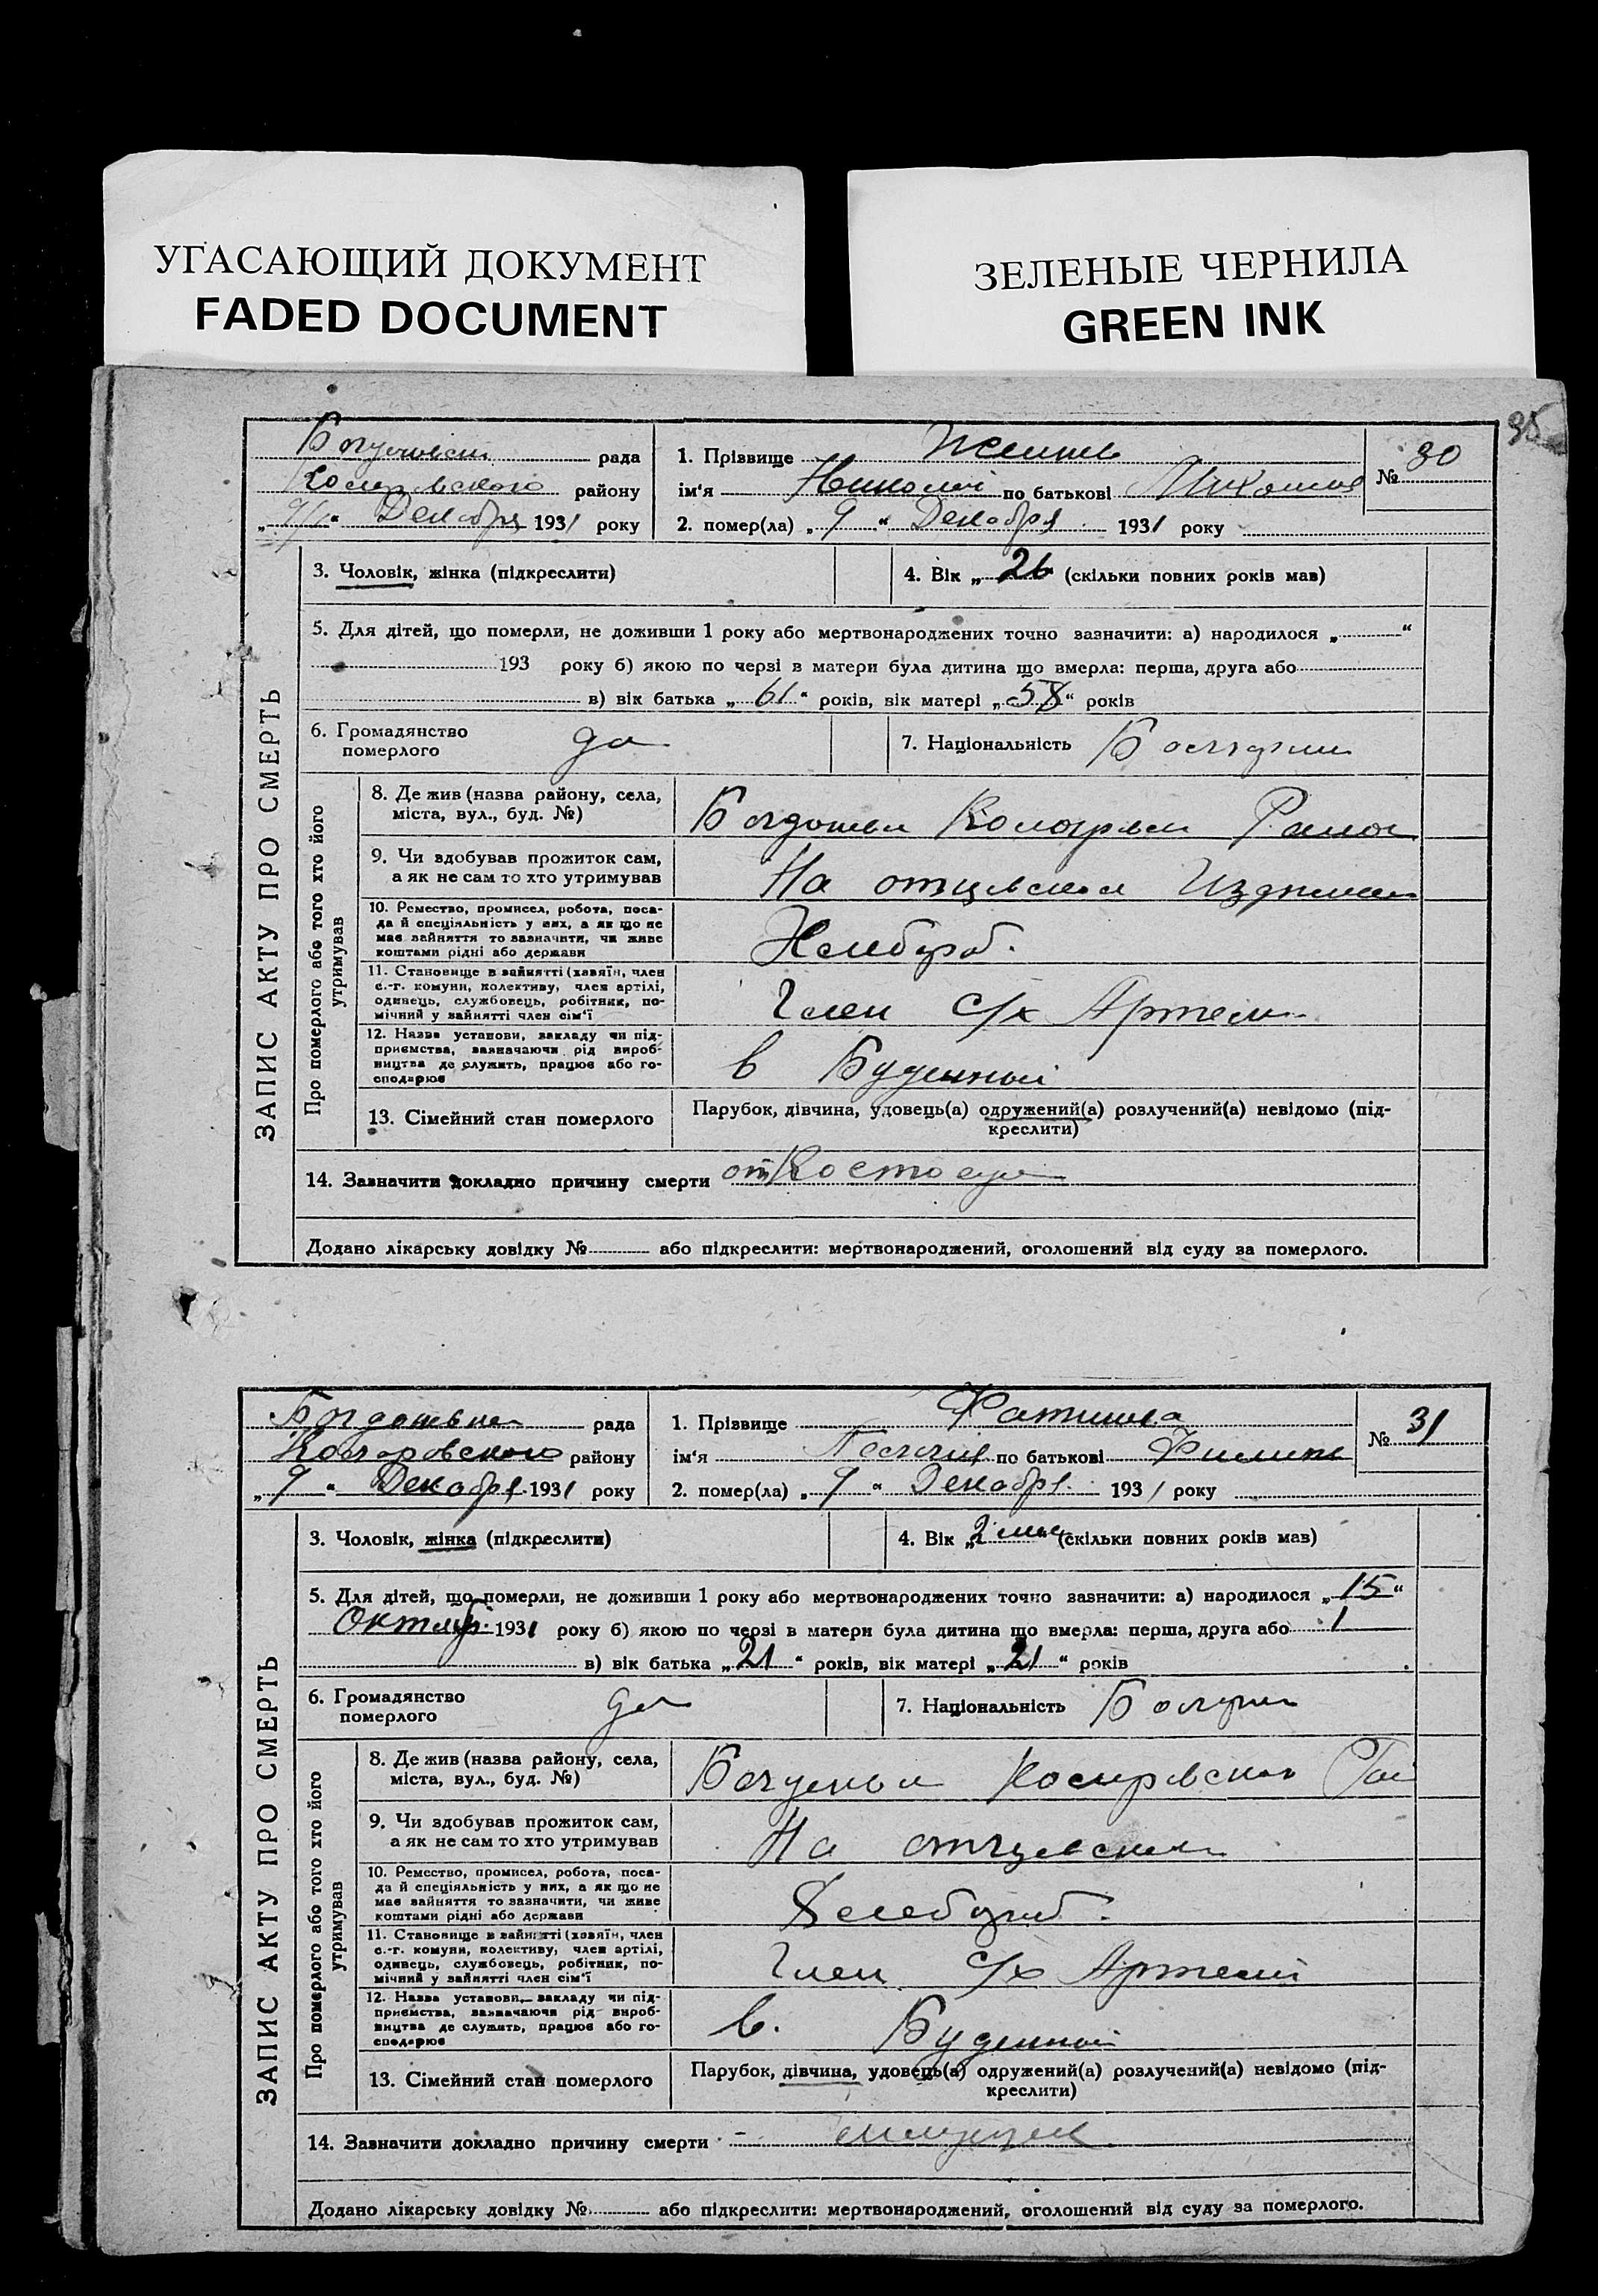 УГАСАЮЩИЙ ДОКУМЕНТ
FADED DOCUMENT
ЗЕЛЕНЫЕ ЧЕРНИЛА
GREEN INK
35
рада
району
Декабря 1931 року
1. Прізвище
ім'я Николай по батькові
№ 30
2. помер(ла) „9“ Декабря 1931 року
ЗАПИС АКТУ ПРО СМЕРТЬ
3. Чоловік, жінка (підкреслити)
4. Вік „26 (скільки повних років мав)
5. Для дітей, що померли, не доживши 1 року або мертвонароджених точно зазначити: а) народилося „ “
193 року б) якою по черзі в матери була дитина що вмерла: перша, друга або
в) вік батька „61“ років, вік матері „58“ років
6. Громадянство
померлого
да
7. Національність
Про померлого або того хто його
утримував
8. Де жив (назва району, села,
міста, вул., буд. №)
9. Чи здобував прожиток сам,
а як не сам то хто утримував
На
10. Ремество, промисел, робота, поса-
да й спеціяльність у них, а як що не
має зайняття то зазначити, чи живе
коштами рідні або держави
Хлебороб.
11. Становище в зайнятті (хавяїн, член
с.-г. комуни, колективу, член артілі,
одинець, службовець, робітник, по-
мічний у зайнятті член сім'ї
Член с/х Артели
12. Назва установи, закладу чи під-
приємства, зазначаючи рід вироб-
ництва де служить, працює або го-
сподарює
в Буденный
13. Сімейний стан померлого
Парубок, дівчина, удовець(а) одружений(а) розлучений(а) невідомо (під-
креслити)
14. Зазначити докладно причину смерти от
Додано лікарську довідку № або підкреслити: мертвонароджений, оголошений від суду за померлого.
рада
району
„9“ Декабря 1931 року
1. Прізвище
ім'я по батькові
№ 31
2. помер(ла) „9“ Декабря 1931 року
ЗАПИС АКТУ ПРО СМЕРТЬ
3. Чоловік, жінка (підкреслити)
4. Вік „2 (скільки повних років мав)
5. Для дітей, що померли, не доживши 1 року або мертвонароджених точно зазначити: а) народилося „15“
Октябр. 1931 року б) якою по черзі в матери була дитина що вмерла: перша, друга або 1
в) вік батька „21“ років, вік матері „21“ років
6. Громадянство
померлого
да
7. Національність
Про померлого або того хто його
утримував
8. Де жив (назва району, села,
міста, вул., буд. №)
9. Чи здобував прожиток сам,
а як не сам то хто утримував
На
10. Ремество, промисел, робота, поса-
да й спеціяльність у них, а як що не
має зайняття то зазначити, чи живе
коштами рідні або держави
11. Становище в зайнятті (хавяїн, член
с.-г. комуни, колективу, член артілі,
одинець, службовець, робітник, по-
мічний у зайнятті член сім'ї
Член с/х Артели
12. Назва установи, закладу чи під-
приємства, зазначаючи рід вироб-
ництва де служить, працює або го-
сподарює
в. Буденный
13. Сімейний стан померлого
Парубок, дівчина, удовець(а) одружений(а) розлучений(а) невідомо (під-
креслити)
14. Зазначити докладно причину смерти
Додано лікарську довідку № або підкреслити: мертвонароджений, оголошений від суду за померлого.